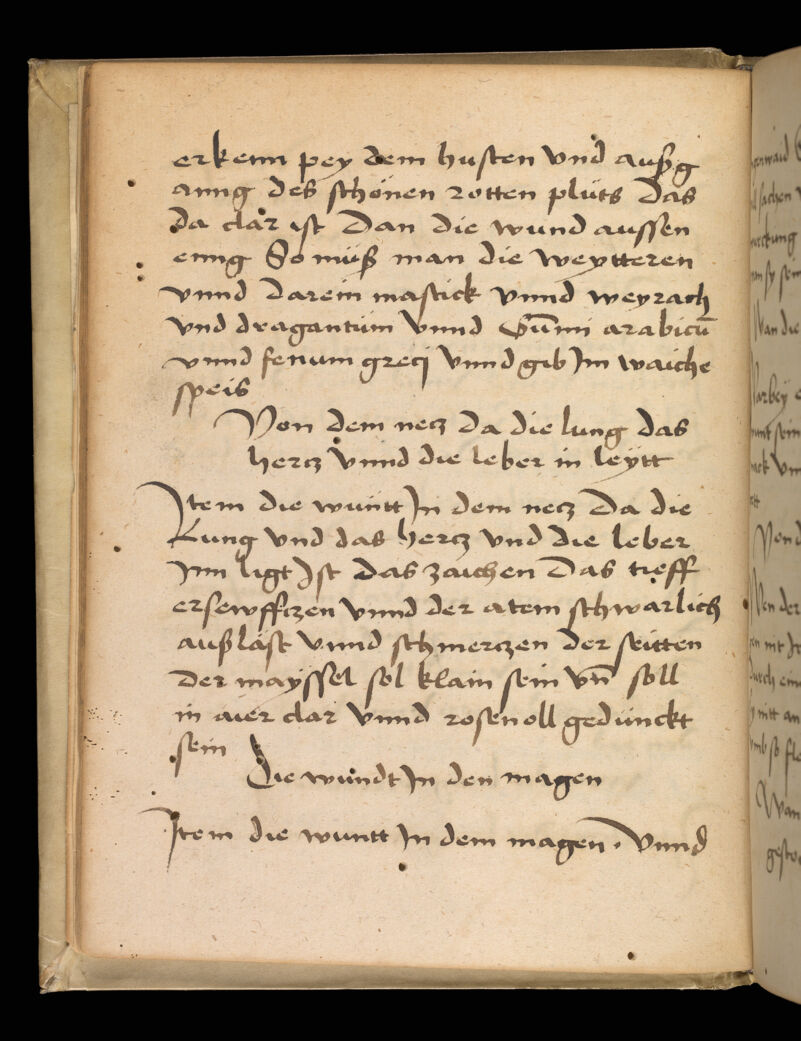 erkenn pey dem husten vnd außg
anng des schönen rotten plüts Das
da clar ist Dan die wund aussen
enng So müß man die weytteren
vnnd darein mastick vnnd weyrach
vnd dragantum vnnd Gu̅mi arabicu̅
vnnd fenum greci vnnd gib Im waiche
speis
Von dem necz da die lung das
hercz vnnd die leber in leytt
Item die wuntt In dem necz Da die
Lung vnd das hercz vnd die leber
Inn ligt Ist das zaichen Das tieff
ersewffczen vnnd der atem schwarlich
außläst vnnd schmerczen der seitten
Der mayssel sol klain sein vn̅ soll
in aier clar vnnd rosenoll gedunckt
sein
Die wundt In den magen
Item die wuntt In dem magen. Vnnd